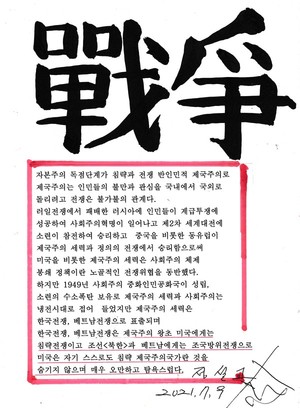 戰爭
자본주의 독점단계가 침략과 전쟁 반인민적 제국주의로
제국주의는 인민들의 불만과 관심을 국내에서 국외로
돌리려고 전쟁은 불가불의 관계다.
러일전쟁에서 패배한 러시아에 인민들이 계급투쟁에
성공하여 사회주의혁명이 일어나고 제2차 세계대전에
소련이 참전하여 승리하고 중국을 비롯한 동유럽이
제국주의 세력과 정의의 전쟁에서 승리함으로써
미국을 비롯한 제국주의 세력은 사회주의 체제
봉쇄 정책이란 노골적인 전쟁위협을 동반했다.
하지만 1949년 사회주의 중화인민공화국이 성립,
소련의 수소폭탄 보유로 제국주의 세력과 사회주의는
냉전시대로 접어 들었지만 제국주의 세력은
한국전쟁, 베트남전쟁으로 표출되며
한국전쟁, 베트남전쟁은 제국주의 왕초 미국에게는
침략전쟁이고 조선<북한>과 베트남에게는 조국방위전쟁으로
미국은 자기 스스로도 침략 제국주의국가란 것을
숨기지 않으며 매우 오만하고 탐욕스럽다.
2021.7.9